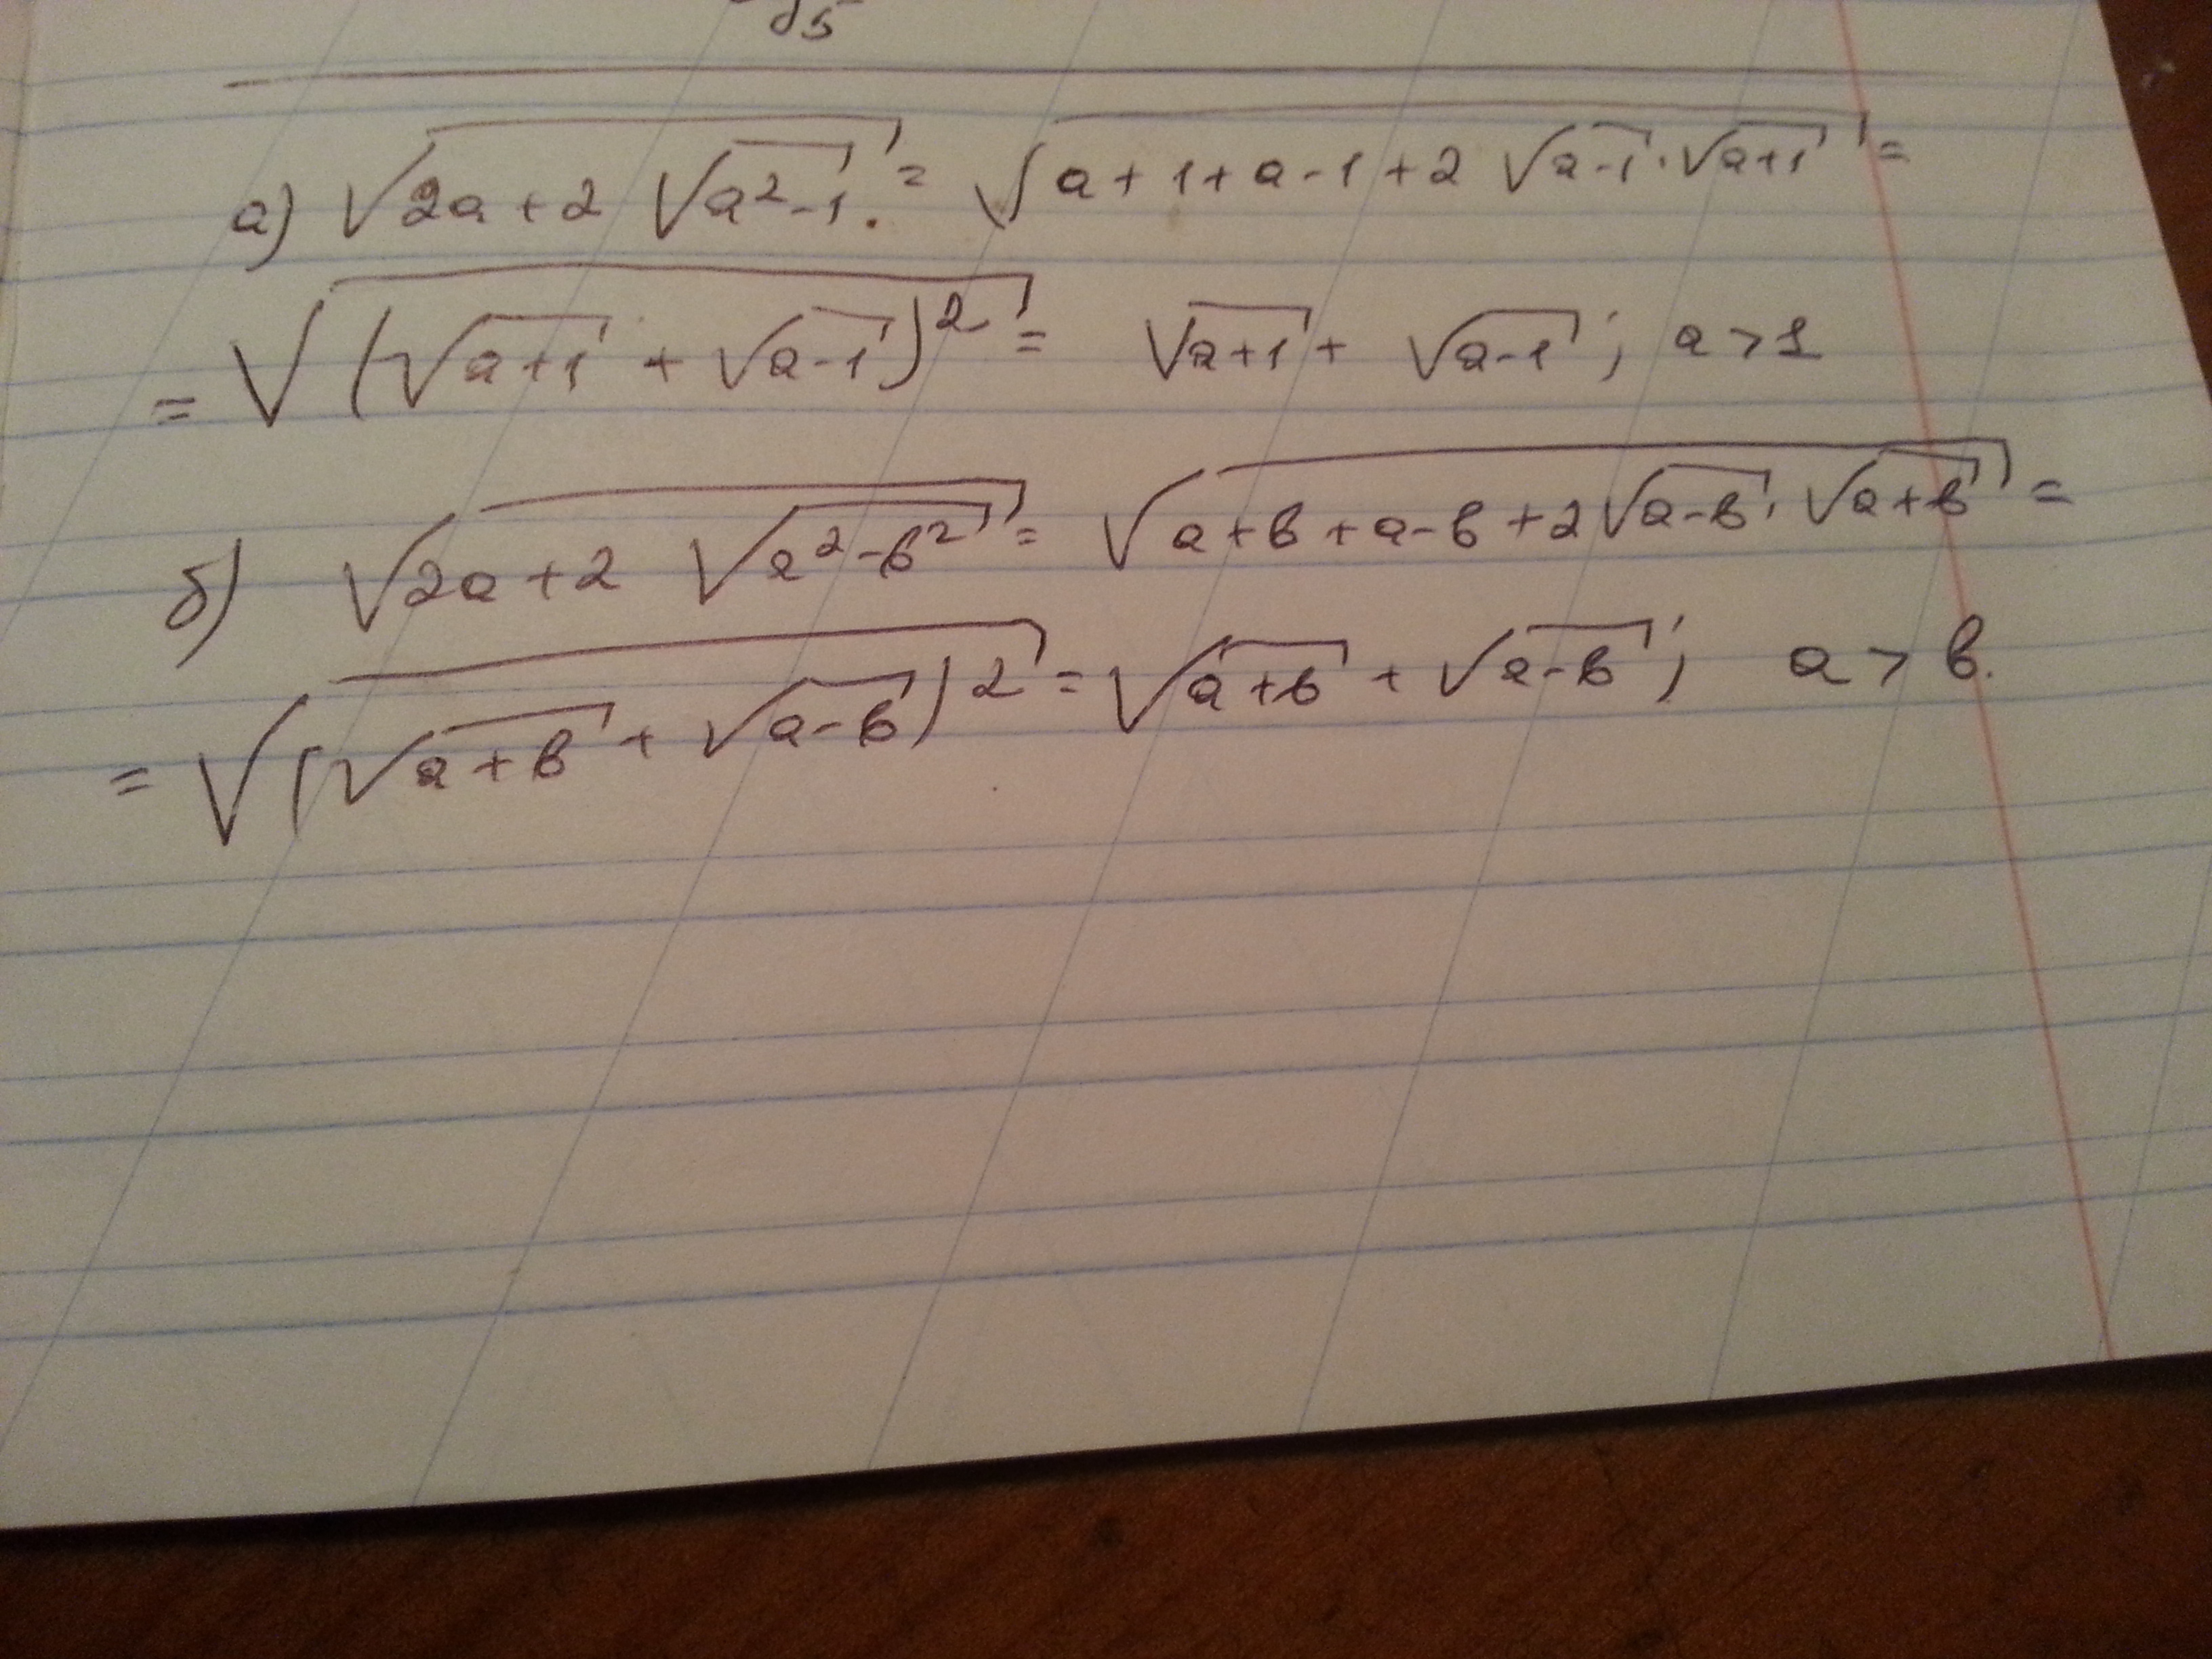 а) √(2a + 2√(a²-1)) = √(a+1+a-1+2√(a-1)·√(a+1)) =
= √((√(a+1) + √(a-1))²) = √(a+1) + √(a-1); a > 1
б) √(2a + 2√(a²-b²)) = √(a+b+a-b+2√(a-b)·√(a+b)) =
= √((√(a+b) + √(a-b))²) = √(a+b) + √(a-b); a > b.